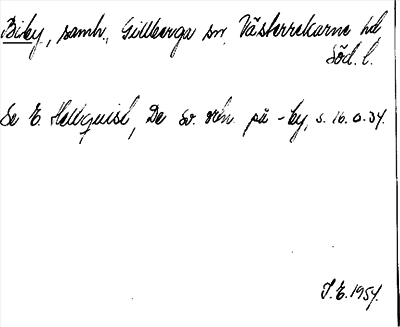 Biby, samh., Gillberga sn, Västerrekarne hd,
Söd. l.
Se E. Hellquist, De sv. ortn. på -by, s. 16 o. 34.
I.E. 1954.